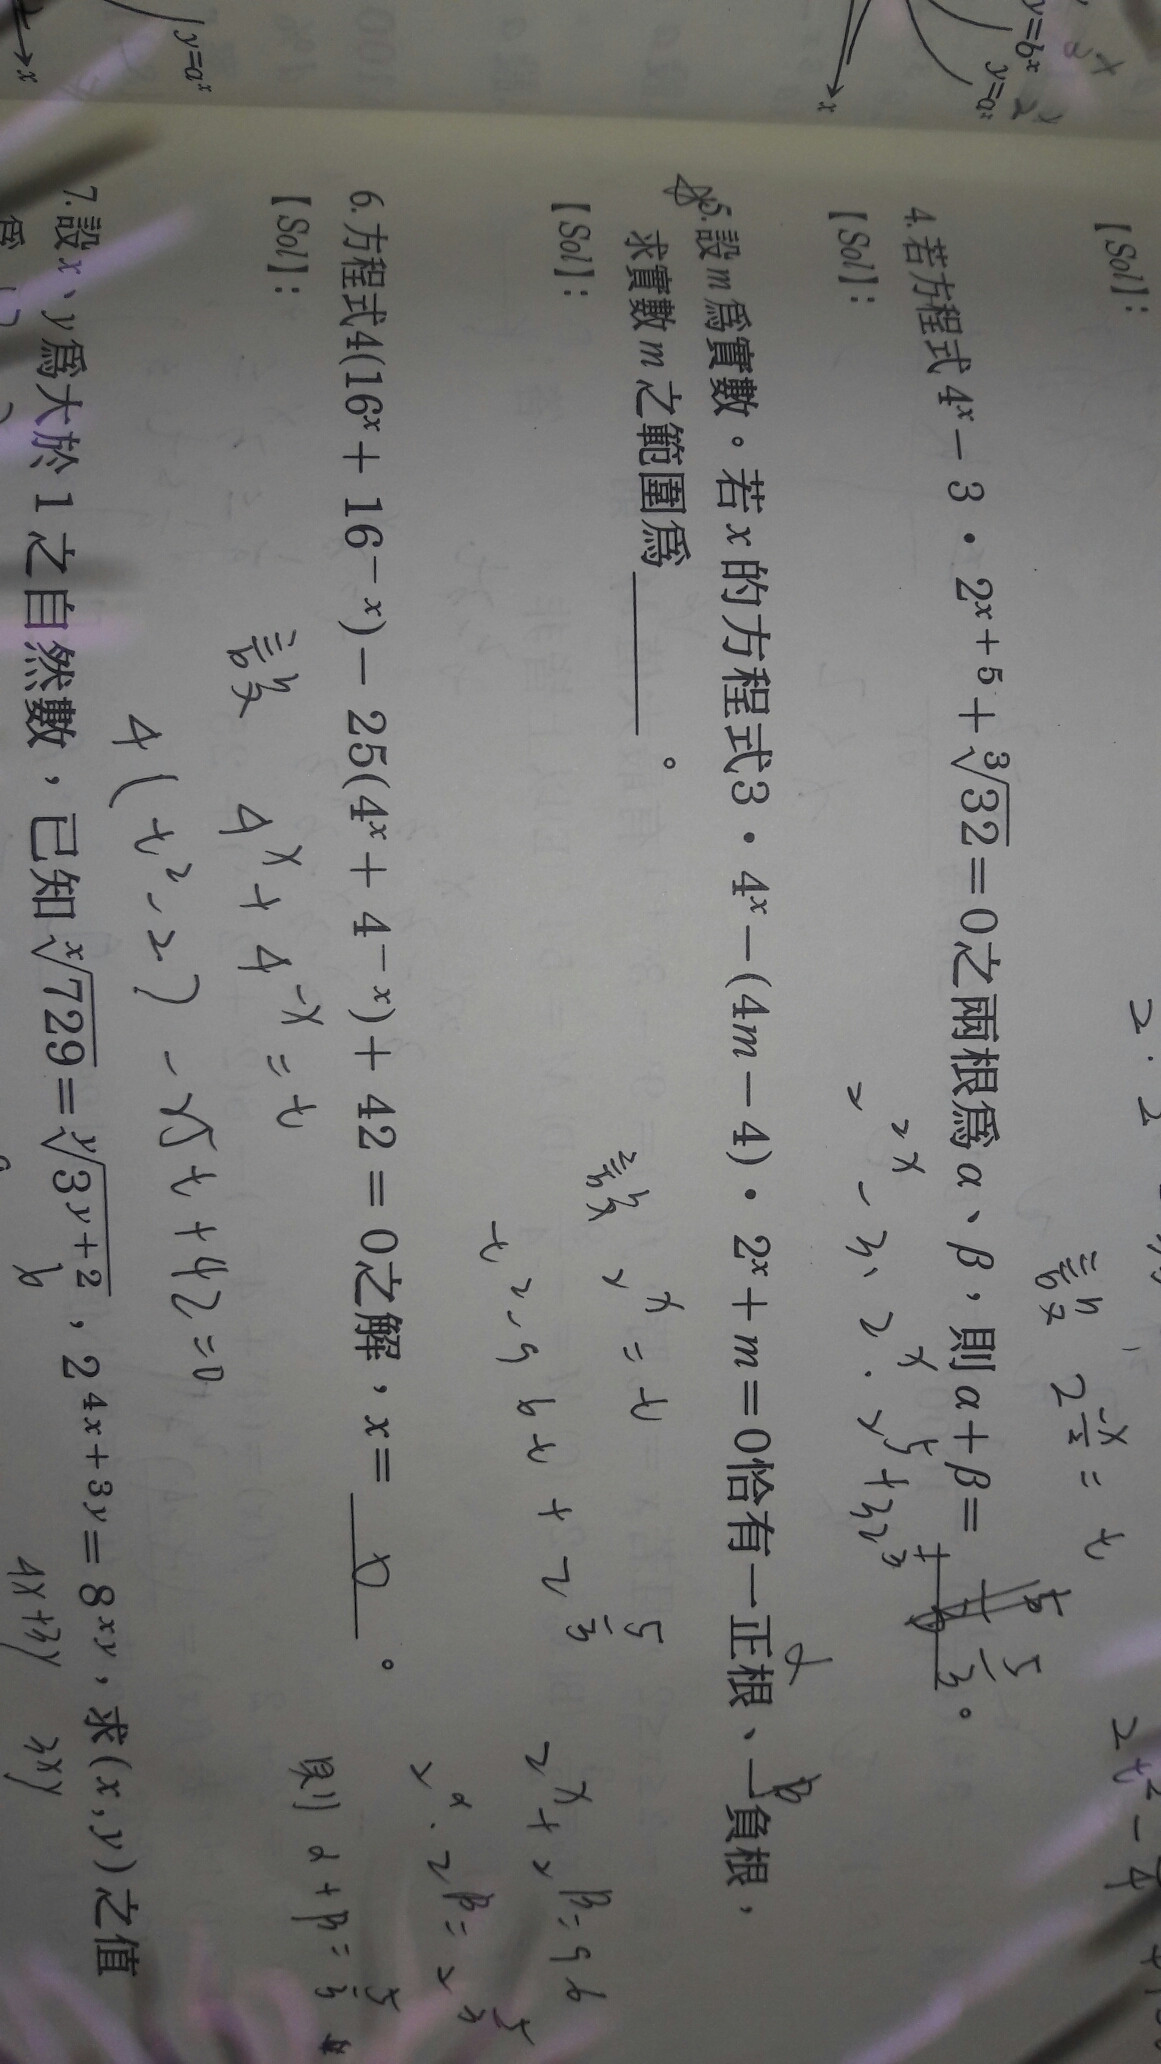 y=bˣ
y=aˣ
x
y=aˣ
x
【Sol】:
設 2^(-x/2) = t
4.若方程式4ˣ－3・2ˣ⁺⁵＋∛32＝0之兩根為α、β，則α＋β＝ 5/3 。
【Sol】:
2²ˣ - 3·2ˣ·2⁵ + 32^(1/3)
5.設m為實數。若x的方程式3・4ˣ－(4m－4)・2ˣ＋m＝0恰有一正根、一負根，
α β
求實數m之範圍為______。
【Sol】:
設 2ˣ = t
t² - 96t + 2^(5/3)
2^α + 2^β = 96
2^α · 2^β = 2^(5/3)
則 α + β = 5/3
6.方程式4(16ˣ＋16⁻ˣ)－25(4ˣ＋4⁻ˣ)＋42＝0之解，x＝ 0 。
【Sol】:
設 4ˣ + 4⁻ˣ = t
4(t² - 2) - 25t + 42 = 0
7.設x、y為大於1之自然數，已知ˣ√729＝ʸ√3ʸ⁺²，2⁴ˣ⁺³ʸ＝8ˣʸ，求(x,y)之值
4x+3y 3xy
為